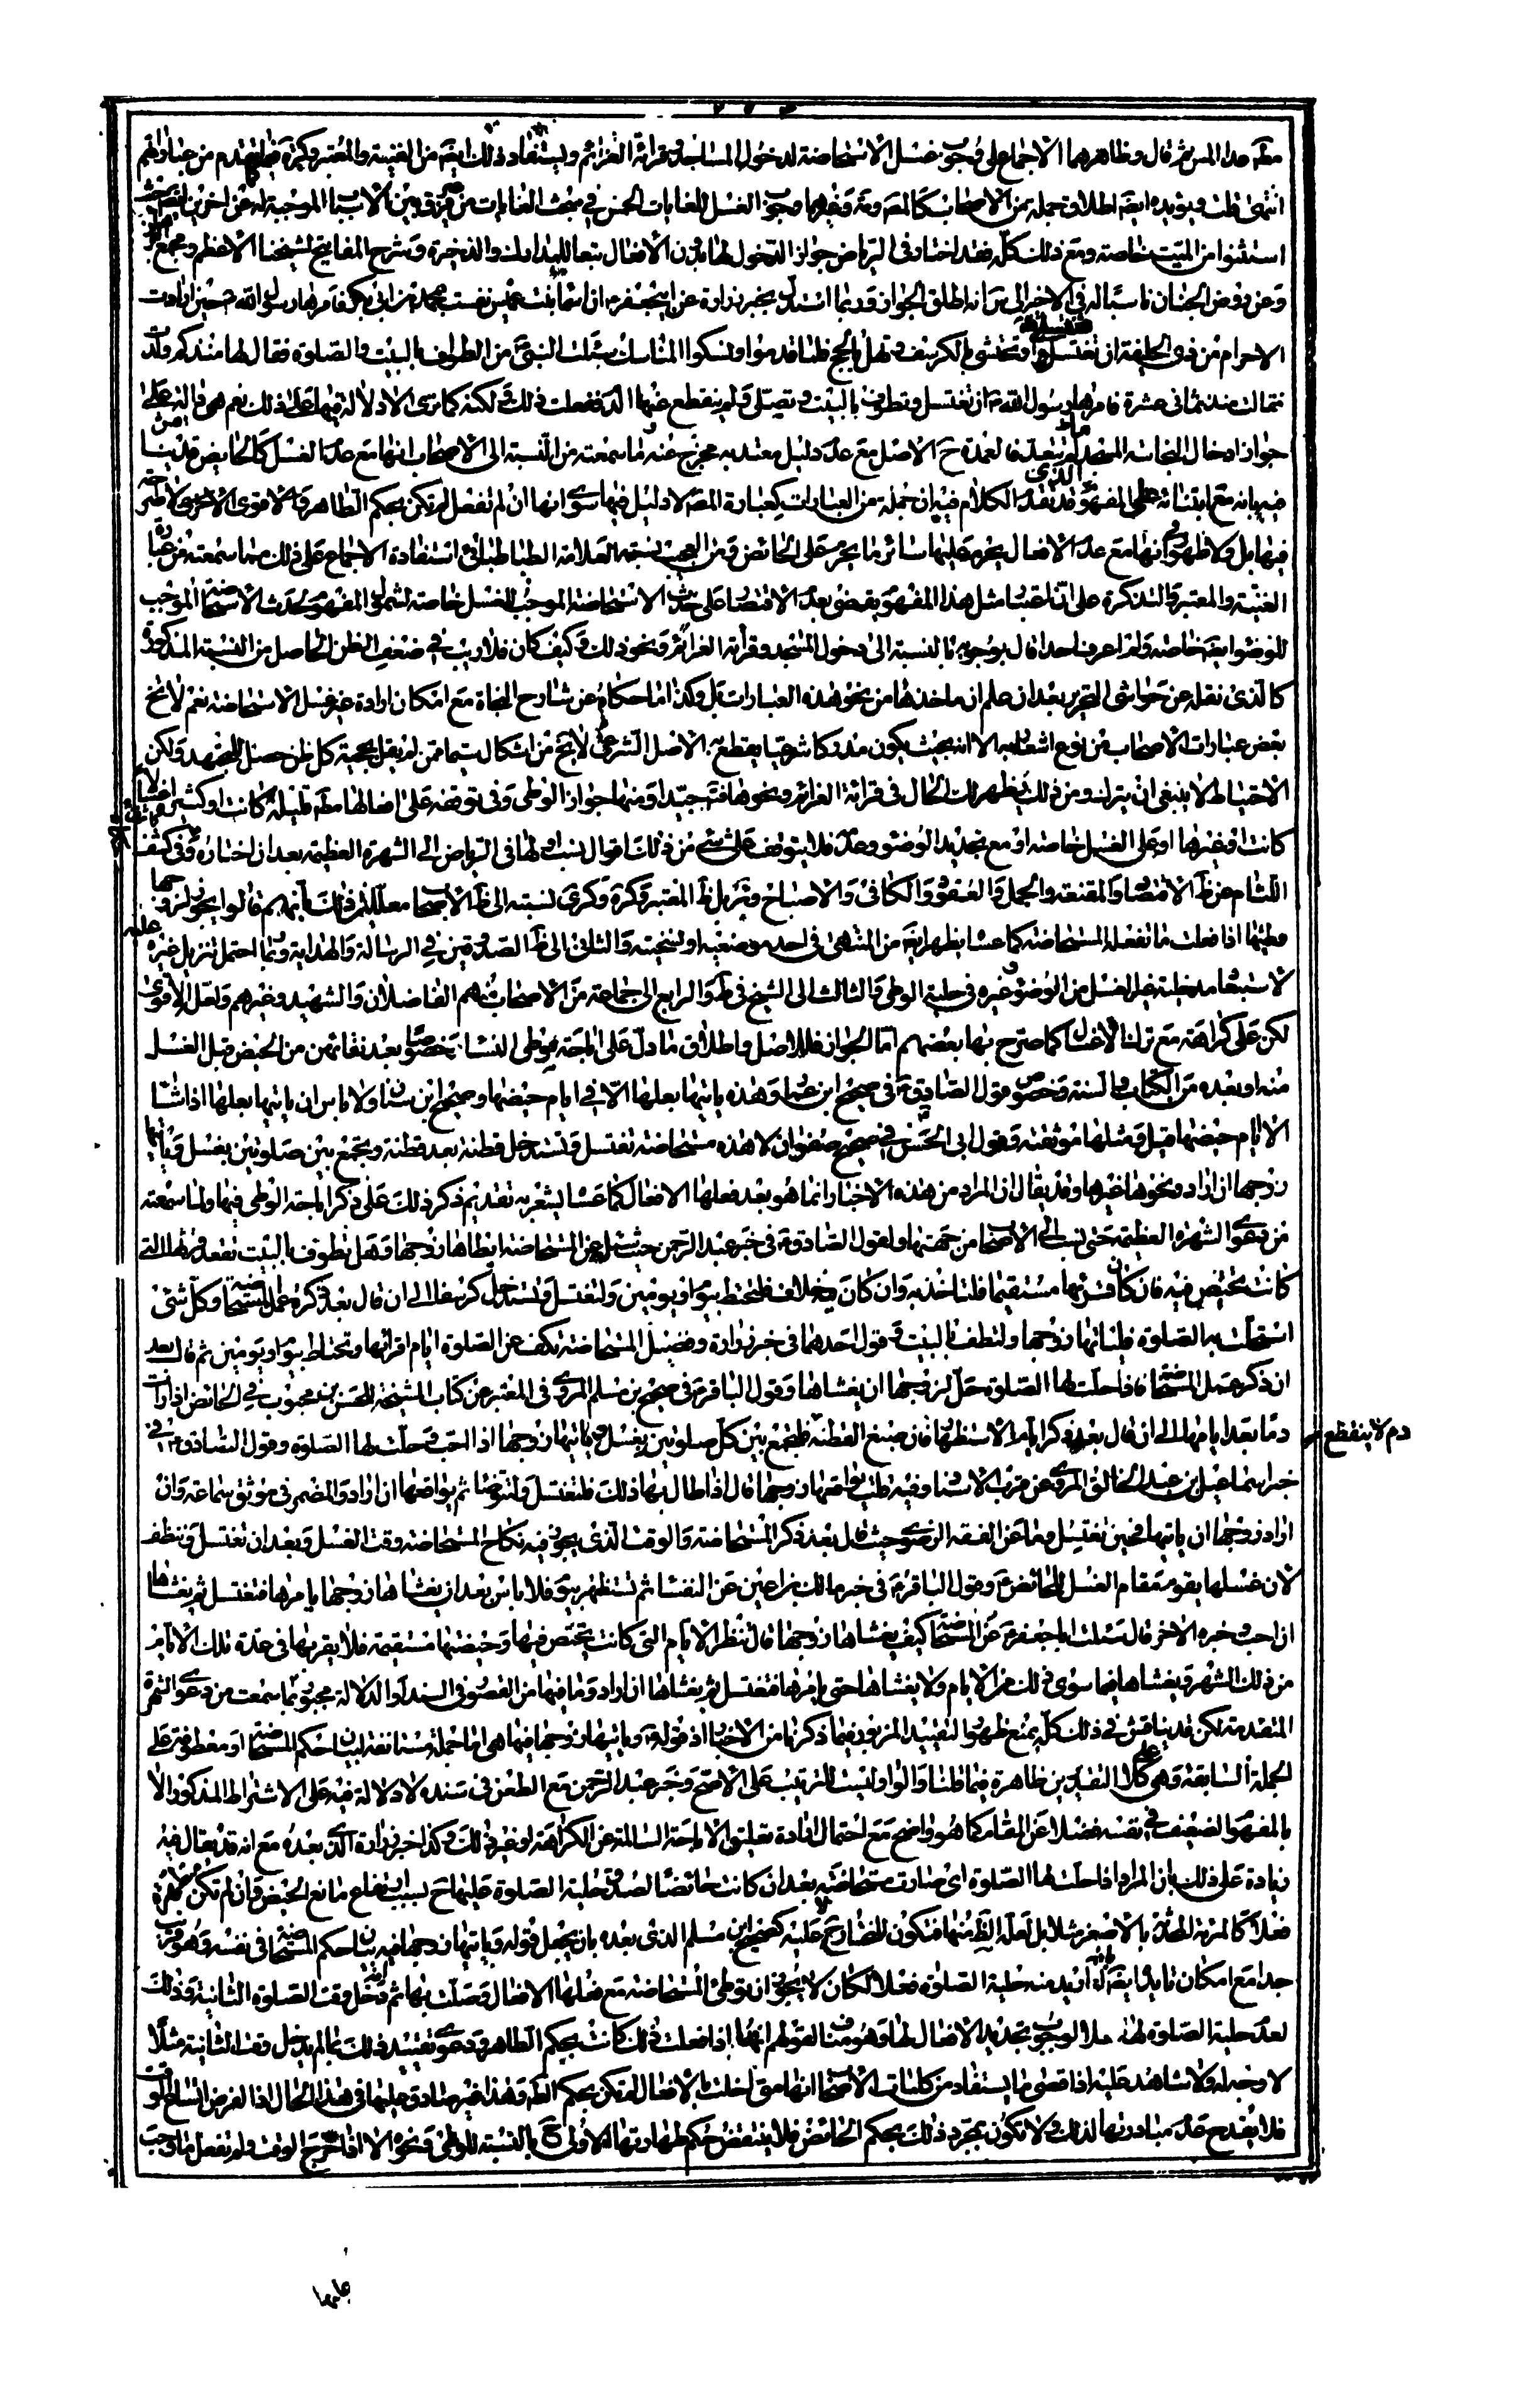 انتهى قلت ويؤيده ايضا اطلاق جملة من الاصحاب وجوب الغسل للغايات الخمس في مبحث الغايات من غير فرق بين الاسباب الموجبة له
استثنوا من المس خاصة ومع ذلك كله فقد اختار في الرياض جواز الدخول لها بدون الافعال تبعا للمدارك والذخيرة وشرح المفاتيح لشيخنا الاعظم ومجمع
وعن روض الجنان ناسبا له في الاخير الى انه اطلق الجواز وربما استدل بخبر زرارة عن ابيجعفر ان اسماء بنت عميس نفست بمحمد بن ابي بكر فامرها رسول الله حين ارادت
الاحرام من ذي الحليفة ان تغتسل وتحتشي بالكرسف وتهل بالحج فلما قدموا ونسكوا المناسك سئلت النبي عن الطواف بالبيت والصلوة فقال لها منذ كم ولدت
فقالت منذ ثماني عشرة فامرها رسول الله ان تغتسل وتطوف بالبيت وتصلي ولم ينقطع عنها الدم ففعلت ذلك لكنه كما ترى لا دلالة فيها على ذلك نعم هي دالة على
جواز ادخال النجاسة المسجد مع عدم التعدي فالعمدة ح الاصل مع عدم دليل معتد به مخرج عنه ما سمعته من النسبة الى الاصحاب انها مع عدم الغسل كالحايض
فيها بل ولا ظهور انها مع عدم الافعال يحرم عليها سائر ما يحرم على الحائض ومن العجيب نسبة العلامة الطباطبائي استفادة الاجماع على ذلك مما سمعته من عبارة
الغنية والمعتبر والتذكرة على ان اعتبار مثل هذا المفهوم يقضي بعدم الاقتصار على حدث الاستحاضة الموجب للغسل خاصة لشمول المفهوم لحدث الاستحاضة الموجب
للوضوء ايضا خاصة ولم اعرف احدا قال بوجوبه بالنسبة الى دخول المسجد وقرائة العزائم ونحو ذلك وكيف كان فلا ريب في ضعف الظن الحاصل من النسبة المذكورة
كالذي نقله عن حواشي التحرير بعد ان علم ان ماخذها من نحو هذه العبارات بل وكذا ما حكاه عن شارح النجاة مع امكان ارادة غير غسل الاستحاضة نعم لا يخ
بعض عبارات الاصحاب من نوع اشعار به الا انه بحيث يكون مدركا شرعيا يقطع به الاصل الشرعي لا يخ من اشكال سيما ممن لم يقل بحجية كل ظن حصل للمجتهد ولكن
الاحتياط لا ينبغي ان يترك ومن ذلك يظهر لك الحال في قرائة العزائم ونحوها فت جيدا ومنها جواز الوطي وفي توقفه على افعالها مطلقا قليلة كانت او كثيرة
كانت او غيرها او على الغسل خاصة او مع تجديد الوضوء وعدمه فلا يتوقف على شيء من ذلك اقوال نسب اولها في الرياض الى الشهرة العظيمة بعد ان اختاره وفي كشف
اللثام عن ظ الاقتصاد والمقنعة والجمل والعقود والكافي والاصباح والسرائر بل ظ المعتبر وكرة وكرى نسبته الى ظ الاصحاب
وطيها اذا فعلت ما تفعله المستحاضة كما عساه يظهر ايضا من المنتهى في احد موضعيه او نسخته والثاني الى ظ الصدوقين في الرسالة والهداية وربما احتمل تنزيل غيره
لاستبعاد مدخلية غير الغسل من الوضوء وغيره في حلية الوطي والثالث الى الشيخ في ط والرابع الى جماعة من الاصحاب منهم الفاضلان والشهيد وغيرهم ولعل الاقوى
لكن على كراهة مع ترك الاغسال كما صرح بها بعضهم اما الجواز فللاصل واطلاق ما دل على اباحة وطي النساء خصوصا بعد نقائهن من الحيض قبل الغسل
منه او بعده من الكتاب والسنة وخصوص قول الصادق في صحيح ابن عمار وهذه ياتيها بعلها الا في ايام حيضها وصحيح ابن سنان ولا باس ان ياتيها بعلها اذا شاء
الا ايام حيضها ومثلها موثقته وقول ابي الحسن في صحيح صفوان لا هذه مستحاضة تغتسل وتستدخل قطنة بعد قطنة وتجمع بين صلوتين بغسل وياتيها
زوجها ان اراد ونحوها غيرها وقد يقال ان المراد من هذه الاخبار انما هو بعد فعلها الافعال كما عساه يشعر به تقديم ذكر ذلك على ذكر اباحة الوطي فيها ولما سمعته
من دعوى الشهرة العظيمة حتى نسب الى الاصحاب من جمعتها ولقول الصادق في خبر عبد الرحمن حيث سئل عن المستحاضة ايطاها زوجها وهل تطوف بالبيت تقعد قرئها الذي
كانت تحيض فيه فان كان قرئها مستقيما فلتاخذ به وان كان فيه خلاف فلتحتط بيوم او يومين ولتغتسل ولتستدخل كرسفا الى ان قال بعد ذكره عمل المستحاضة وكل شيء
استحلت به الصلوة فلياتها زوجها ولتطف بالبيت وقول احدهما في خبر زرارة وفضيل المستحاضة تكف عن الصلوة ايام اقرائها وتحتاط بيوم او يومين ثم قال بعد
ان ذكر عمل المستحاضة فاذا حلت لها الصلوة حل لزوجها ان يغشاها وقول الباقر في صحيح بن مسلم المروي في المعتبر عن كتاب المشيخة للحسن بن محبوب في الحائض اذا رات
دما بعد ايامها الى ان قال بعد ذكر ايام الاستظهار فان صبغ القطنة فلتجمع بين كل صلوتين بغسل وياتيها زوجها اذا احب وحلت لها الصلوة وقول الصادق في
دم لا ينقطع
خبر اسماعيل بن عبد الخالق المروي عن قرب الاسناد وفيه قلت يواقعها زوجها قال اذا طال بها ذلك فلتغتسل ولتتوضا ثم يواقعها ان اراد والمضمر في موثق سماعة وان
اراد زوجها ان ياتيها فحين تغتسل وما عن الفقه الرضوي حيث قال بعد ذكر المستحاضة والوقت الذي يجوز فيه نكاح المستحاضة وقت الغسل وبعد ان تغتسل وتنظف
لان غسلها يقوم مقام الغسل للحائض وقول الباقر في خبر مالك بن اعين عن النفساء ثم تستظهر بيوم فلا باس بعد ان يغشاها زوجها يامرها فتغتسل ثم يغشاها
ان احب وخبره الاخر قال سئلت ابا جعفر عن المستحاضة كيف يغشاها زوجها قال تنظر الايام التي كانت تحيض فيها وحيضتها مستقيمة فلا يقربها في عدة تلك الايام
من ذلك الشهر ويغشاها فيما سوى ذلك من الايام ولا يغشاها حتى يامرها فتغتسل ثم يغشاها ان اراد وما فيها من القصور في السند او الدلالة مجبور بما سمعت من دعوى الشهرة
المتقدمة لكن قد يناقش في ذلك كله بمنع ظهور التقييد المزبور فيما ذكرنا من الاخبار اذ قوله وياتيها زوجها فيها هي اما جملة مستانفة لبيان حكم المستحاضة او معطوفة على
الجملة السابقة وهي على كلا التقديرين ظاهرة فيما قلنا والواو ليست للترتيب على الاصح وخبر عبد الرحمن مع الطعن في سنده لا دلالة فيه على الاشتراط المذكور الا
بالمفهوم الضعيف في نفسه فضلا عن المقام كما هو واضح مع احتمال ارادة تعليق الاباحة السالمة عن الكراهة او غير ذلك وكذا خبر زرارة الذي بعده مع انه قد يقال فيه
زيادة على ذلك بان المراد اذا حلت لها الصلوة اي صارت مستحاضة بعد ان كانت حائضا لصدق حلية الصلوة عليها ح بسبب ارتفاع مانع الحيض وان لم تكن
فعلا كالمرئة المحدثة بالاصغر مثلا بل لعله الظ منها فتكون للمختار ح عليه كصحيح ابن مسلم الذي بعده بان يجعل قوله وياتيها زوجها فيه بيان حكم المستحاضة في نفسه وهو قريب
جدا مع امكان تاييد ايضا بانه لو اريد منه حلية الصلوة فعلا لكان لا يجوز ان توطئ المستحاضة مع فعلها الافعال وصلت بها ثم دخل وقت الصلوة الثانية وذلك
لعدم حلية الصلوة لها فعلا لوجوب تجديد الافعال لها وهو مناف لقولهم انها اذا فعلت ذلك كانت بحكم الطاهر ودعوى تقييد ذلك بما لم يدخل وقت الثانية مثلا
لا وجه له ولا شاهد عليه اذ اقصى ما يستفاد من كلمات الاصحاب انها متى اخلت بالافعال لم تكن بحكم الطاهر وهذا غير صادق عليها في هذا الحال اذ الفرض اتساع الوقت
فلا يقدح عدم مبادرتها لذلك ولا تكون بمجرد ذلك بحكم الحائض فلا ينتقض حكم طهارتها الاولى ح بالنسبة للوطي ونحوه الا اذا خرج الوقت ولم تفعل ما وجب
عليها